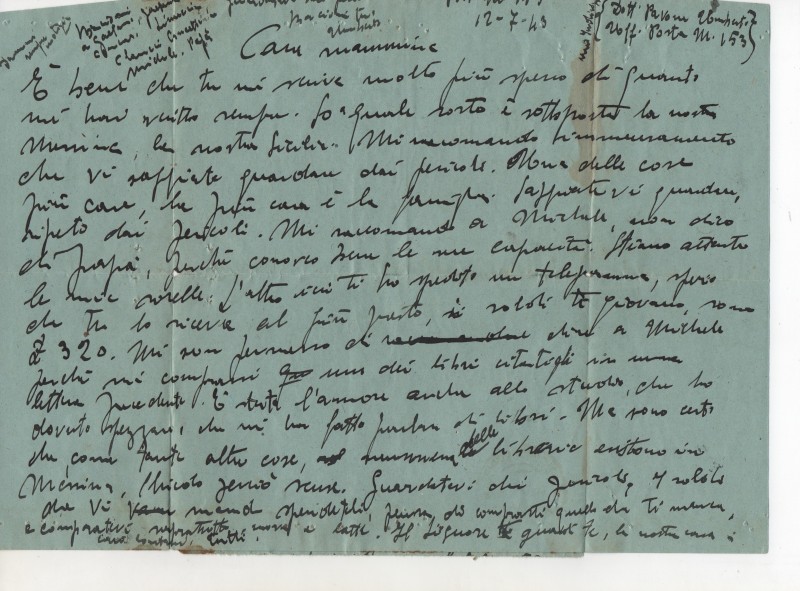 12-7-43
Cara mammina
È bene che tu mi scriva molto più spesso di quanto
mi hai scritto sempre. So a quale sorta è sottoposta la nostra
Messina, la nostra Sicilia. Mi raccomando immensamente
che vi sappiate guardare dai pericoli. Una delle cose
più care, la più cara è la famiglia. Sappiatevi guardare,
ripeto dai pericoli. Mi raccomando a Michele, non dico
di papà, perché conosco bene le sue capacità. Stiano attente
le mie sorelle. L'altro ieri ti ho spedito un telegramma, spero
che tu lo riceva al più presto, i soldi ti giovano, sono
£ 320. Mi son permesso di dire a Michele
perché mi comprassi uno dei libri citatigli in una
lettera precedente. È stato l'amore anche allo studio, che ho
dovuto spezzare, che mi ha fatto parlare di libri. Ma sono certo
che, come tante altre cose, nessuna delle librerie esistono in
Messina, chiedo perciò scusa. Guardatevi dai pericoli, i soldi
che vi mando spendeteli, pensa di comprarti quello che ti manca,
e compratevi soprattutto uova e latte. Il Signore guardi te, la nostra casa e
cara lontano, tutti.